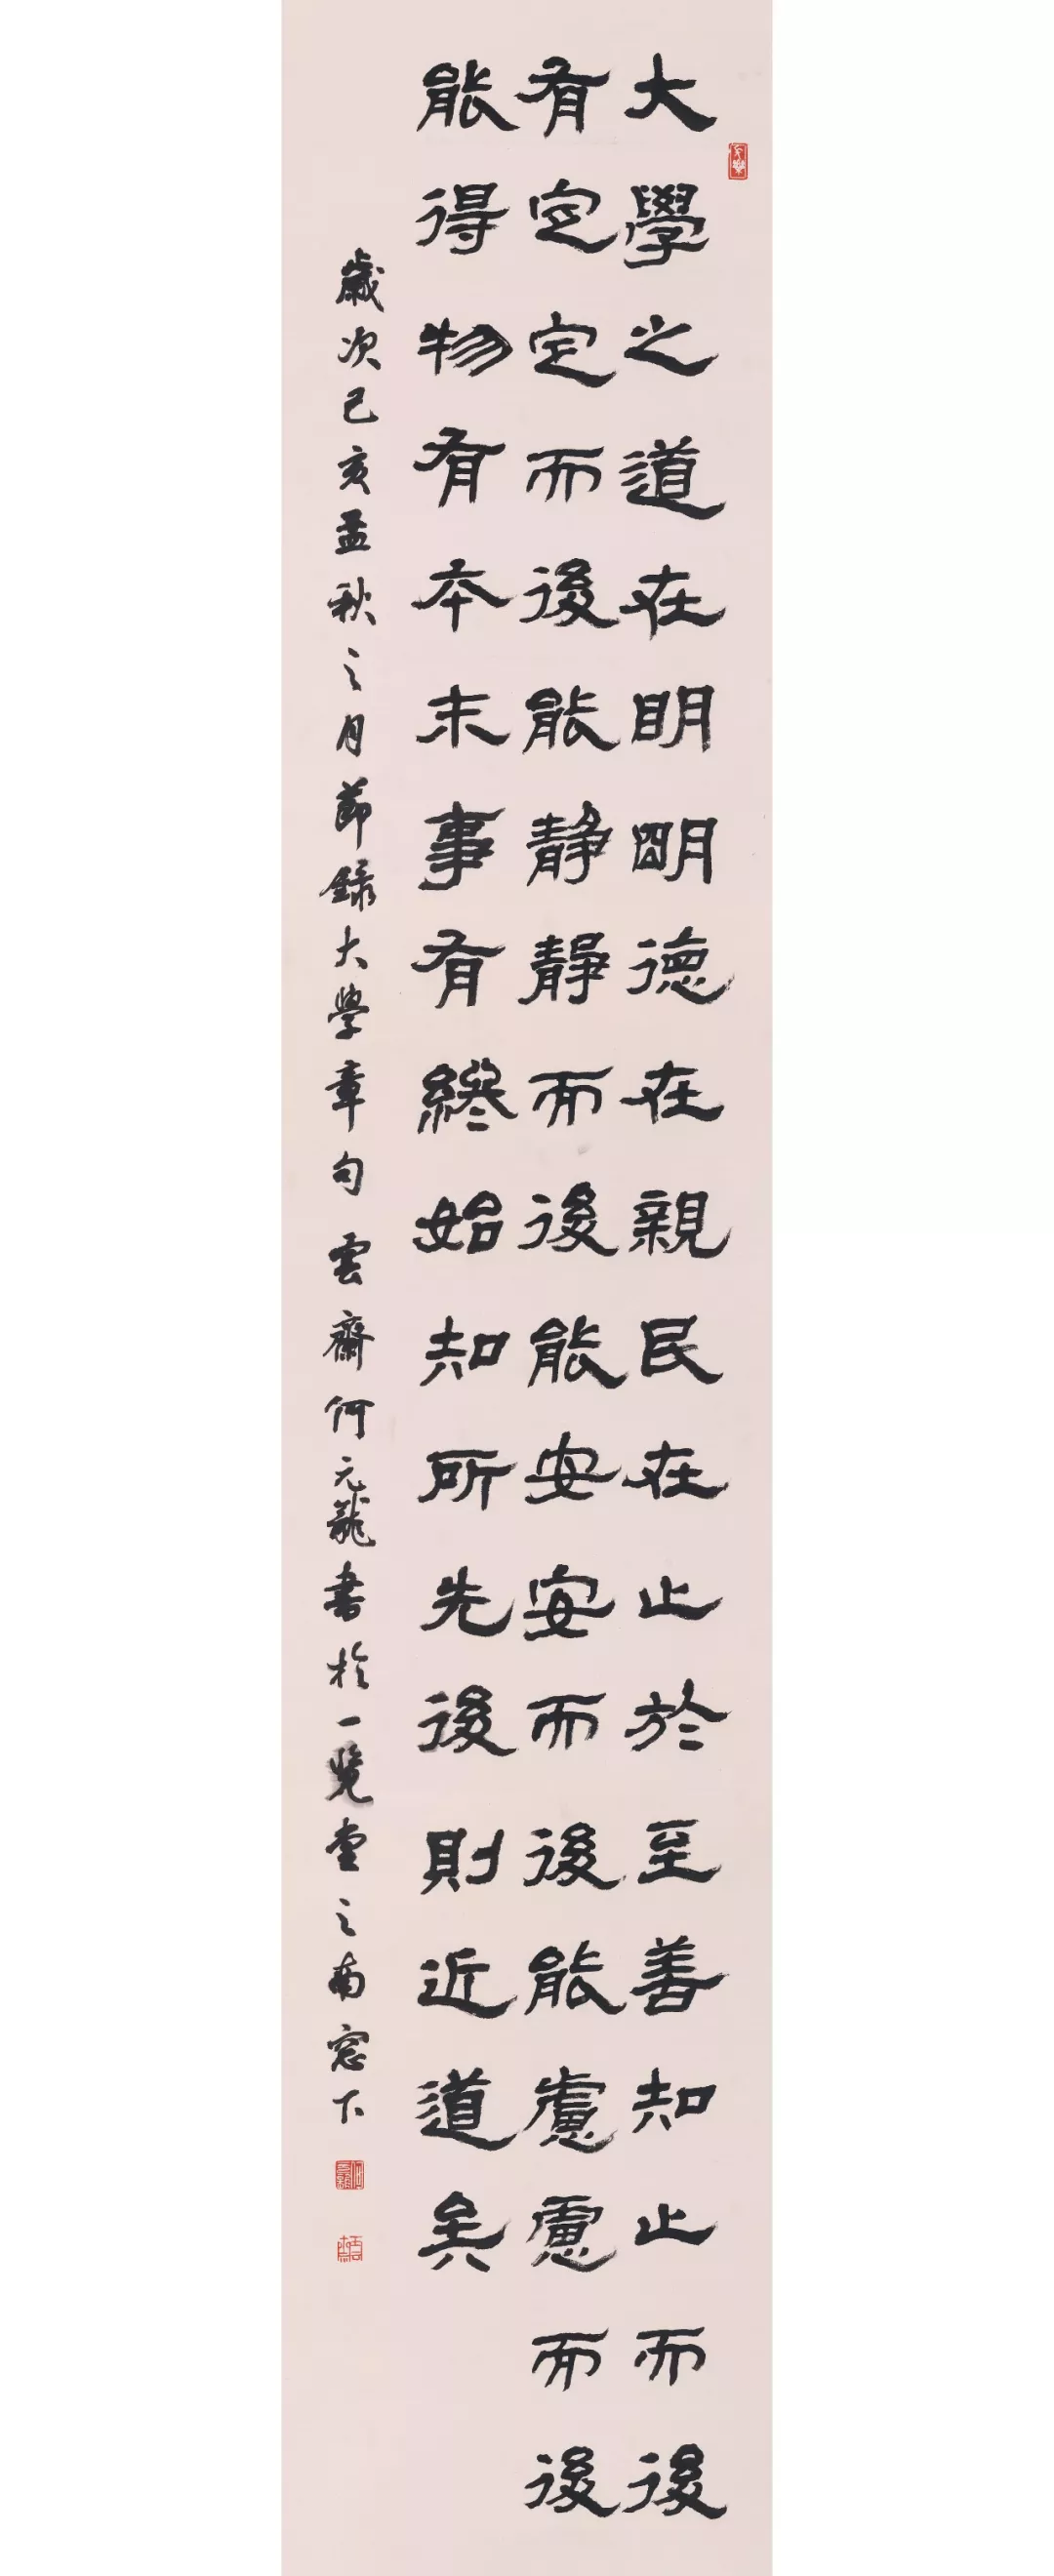 大學之道在明明德在親民在止於至善知止而後
有定定而後能靜靜而後能安安而後能慮慮而後
能得物有本末事有終始知所先後則近道矣
歲次己亥孟秋之月節錄大學章句雲齋何元龍書於一覽堂之南窓下